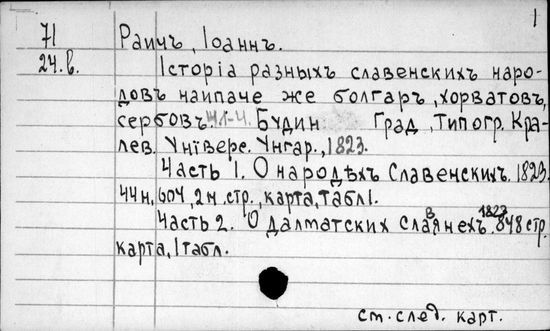 1
71 Раичъ, Іоаннъ.
24.в. Історіа разныхъ славенскихъ наро-
довъ наипаче же болгаръ, хорватовъ,
сербовъ. Ч.1-4. Будин Град, Типогр. Кра-
лев. Універе. Унгар., 1823.
Часть 1. О народѣхъ Славенскихъ. 1823.
44н, 604, 2н. стр., карта, табл1.
Часть 2. О далматских Славянехъ. 1823 848 стр.
карта, 1табл.
см. след. карт.